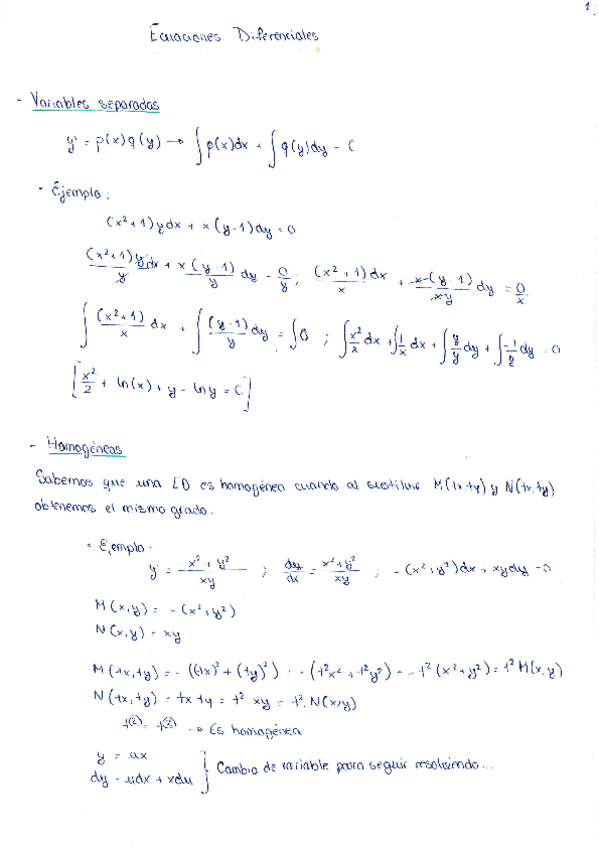 1
Ecuaciones Diferenciales
- Variables separadas
y' = p(x)q(y) → ∫p(x)dx + ∫q(y)dy = C
· Ejemplo:
(x²+1)ydx + x(y-1)dy = 0
(x²+1)y/y dx + x(y-1)/y dy = 0/y ; (x²+1)dx/x + x(y-1)/xy dy = 0/x
∫(x²+1)/x dx + ∫(y-1)/y dy = ∫0 ; ∫x²/x dx + ∫1/x dx + ∫y/y dy + ∫-1/y dy = 0
[x²/2 + ln(x) + y - ln y = C]
- Homogéneas
Sabemos que una ED es homogénea cuando al sustituir M(tx,ty) y N(tx,ty)
obtenemos el mismo grado.
· Ejemplo:
y' = x²+y²/xy ; dy/dx = x²+y²/xy ; -(x²+y²)dx + xydy = 0
M(x,y) = -(x²+y²)
N(x,y) = xy
M(tx,ty) = -((tx)²+(ty)²) = -(t²x²+t²y²) = -t²(x²+y²) = t² M(x,y)
N(tx,ty) = tx ty = t² xy = t² N(x,y)
t² = t² → Es homogénea
y = ux
dy = udx + xdu } Cambio de variable para seguir resolviendo...